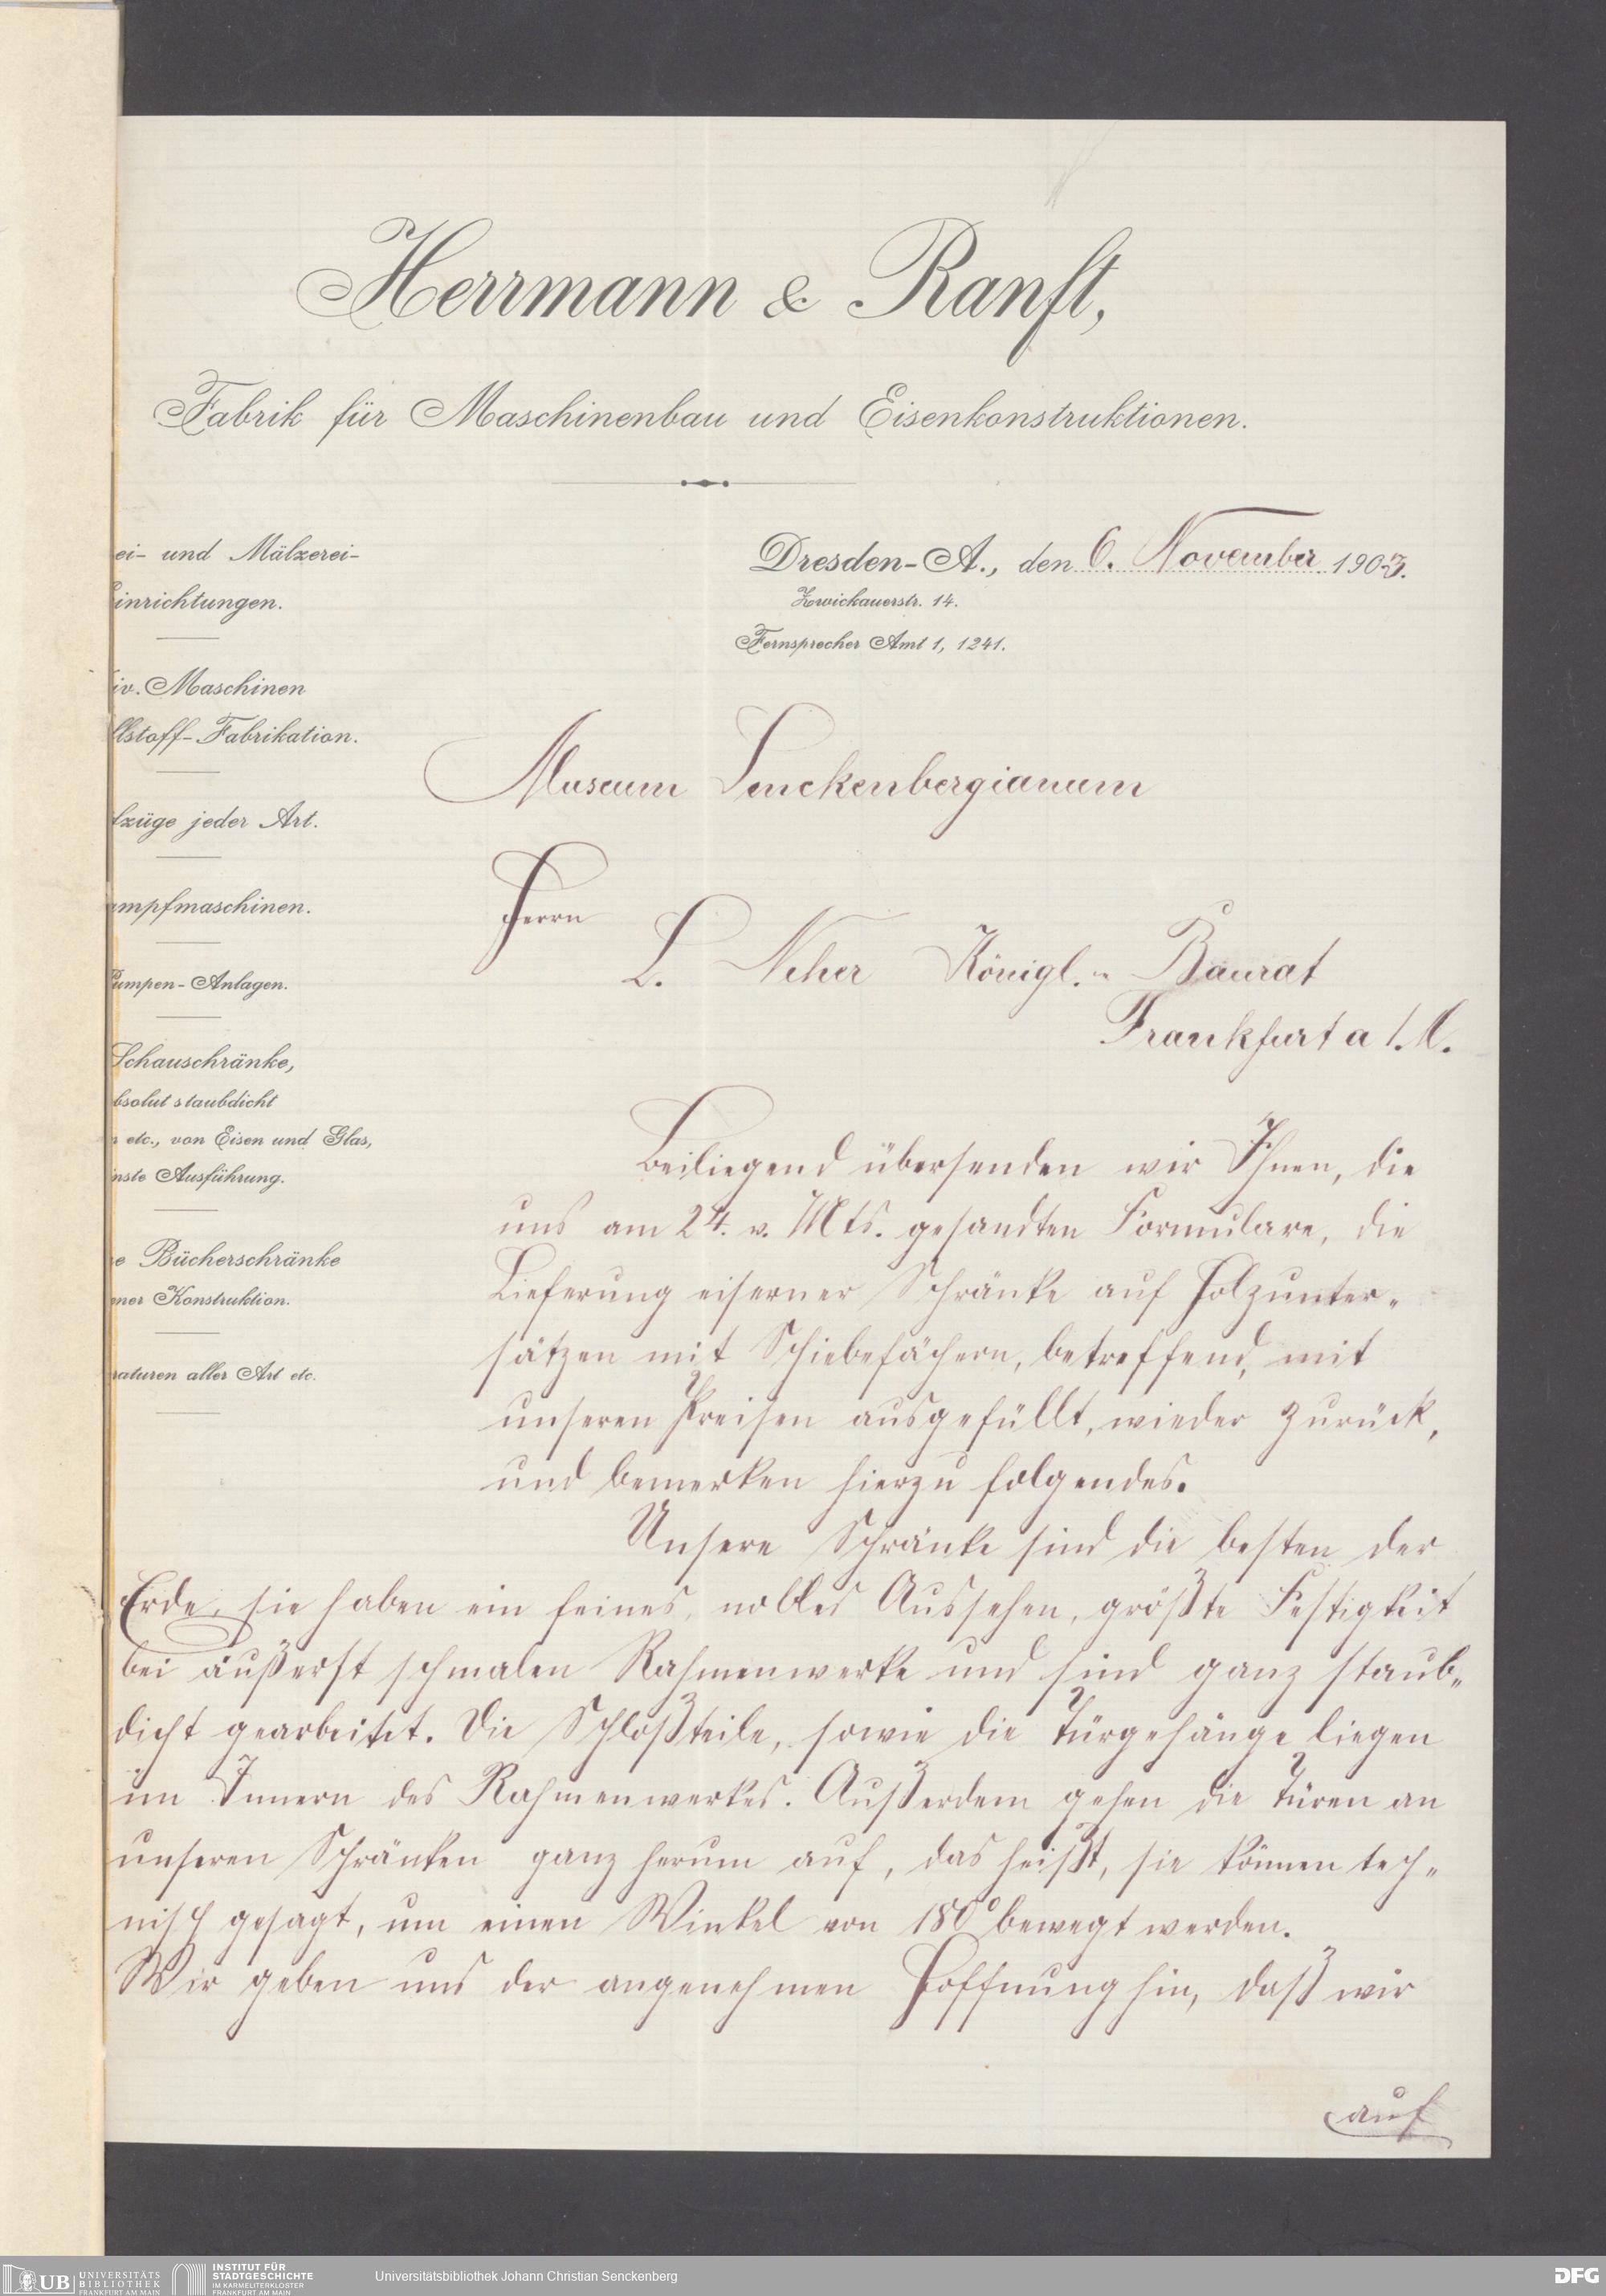 Herrmann & Ranft,
Fabrik für Maschinenbau und Eisenkonstruktionen.
ei- und Mälzerei-
Einrichtungen.
iv. Maschinen
llstoff-Fabrikation.
fzüge jeder Art.
ampfmaschinen.
Pumpen-Anlagen.
Schauschränke,
bsolut staubdicht
etc., von Eisen und Glas,
inste Ausführung.
e Bücherschränke
ener Konstruktion.
raturen aller Art etc.
Dresden-A., den 6. November 1903.
Zwickauerstr. 14.
Fernsprecher Amt 1, 1241.
Museum Senckenbergianum
Herrn
L. Neher Königl. Baurat
Frankfurt a/M.
Beiliegend übersenden wir Ihnen, die
uns am 24. v. Mts. gesandten Formulare, die
Lieferung eiserner Schränke auf Holzunter-
sätzen mit Schiebefächern, betreffend, mit
unseren Preisen ausgefüllt, wieder zurück,
und bemerken hierzu folgendes.
Unsere Schränke sind die besten der
Erde, sie haben ein feines, nobles Aussehen, größte Festigkeit
bei äußerst schmalen Rahmenwerke und sind ganz staub-
dicht gearbeitet. Die Schloßteile, sowie die Türgehänge liegen
im Innern des Rahmenwerkes. Außerdem gehen die Türen an
unseren Schränken ganz herum auf, das heißt, sie können tech-
nisch gesagt, um einen Winkel von 180° bewegt werden.
Wir geben uns der angenehmen Hoffnung hin, daß wir
auf
UB UNIVERSITÄTS
BIBLIOTHEK
FRANKFURT AM MAIN
INSTITUT FÜR
STADTGESCHICHTE
IM KARMELITERKLOSTER
FRANKFURT AM MAIN
Universitätsbibliothek Johann Christian Senckenberg
DFG